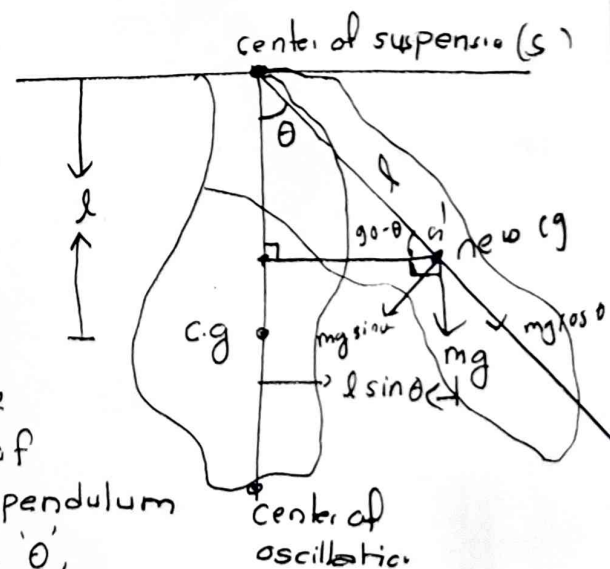 center of suspensio (s)
θ
l
l
90-θ
G'
new cg
c.g
mg sinθ
mg
mg cos θ
l sinθ
of
pendulum
'θ',
center of
oscillatio.